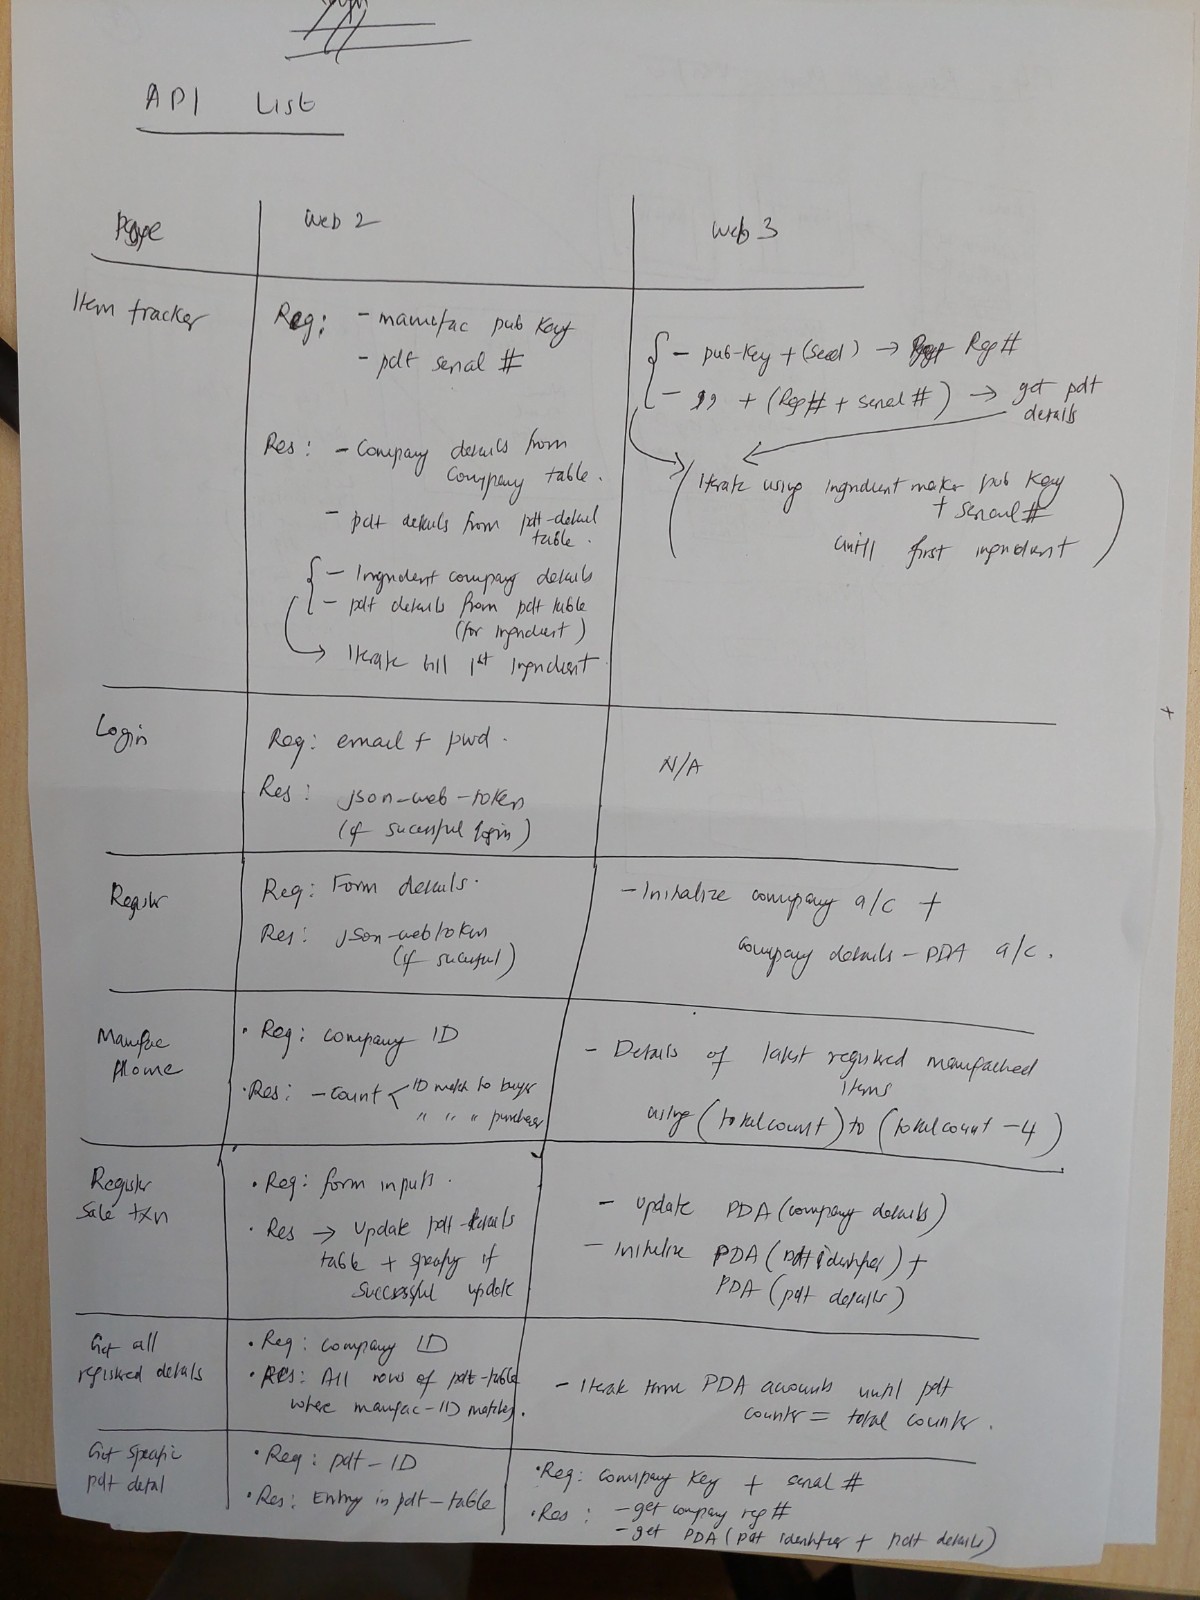 API List
Page
Web 2
Web 3
Item tracker
Req: - manufac pub key
- pdt serial #
- pub-key + (seed) → Reg #
- ,, + (Reg# + serial #) → get pdt
details
(Iterate using ingredient maker pub key
+ serial #
untill first ingredient)
Res: - Company details from
Company table.
- pdt details from pdt-detail
table.
- Ingredient company details
- pdt details from pdt table
(for ingredient)
→ Iterate till 1st ingredient
Login
Req: email + pwd.
Res: json-web-token
(if sucessful login)
N/A
Register
Req: Form details.
Res: json-webtoken
(if sucessful)
- Initialize company a/c +
company details - PDA a/c.
Manufac
Home
• Req: company ID
• Res: - count < ID match to buyer
" " " purchaser
- Details of latest registered manufactured
items
using (total count) to (total count - 4)
Register
Sale txn
• Req: form inputs.
• Res → Update pdt-details
table + specify if
successful update
- update PDA (company details)
- initialize PDA (pdt identifier) +
PDA (pdt details)
Get all
registered details
• Req: company ID
• Res: All rows of pdt-table
where manufac-ID matches.
- Iterate PDA accounts until pdt
counter = total counter.
Get specific
pdt detail
• Req: pdt-ID
• Res: Entry in pdt-table
• Req: company key + serial #
• Res: - get company reg #
- get PDA (pdt identifier + pdt details)